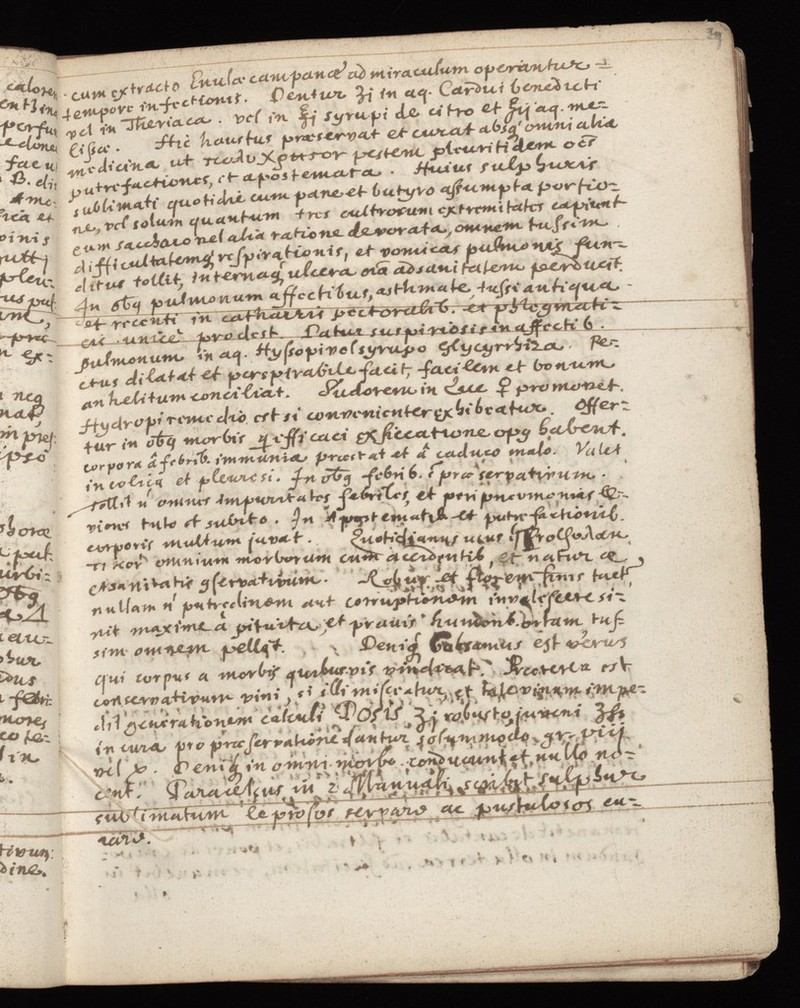 39
cum extracto Enulæ campanæ ad miraculum operantur
tempore infectionis. Dentur ʒj in aq. Cardui benedicti
vel in Theriaca. vel in ℥j syrupi de citro et ℥ij aq. me-
lissæ. Hic haustus præservat et curat absq omni alia
medicina ut pestem pleuritidem oēs
putrefactiones, et apostemata. Huius sulphuris
sublimati quotidie cum pane et butyro assumpta portio-
ne, vel solum quantum tres cultrorum extremitates capiunt
cum saccharo vel alia ratione devorata, omnem tussim
difficultatemq respirationis, et vomicas pulmonis fun-
ditus tollit, internaq ulcera oīa ad sanitatem perducit.
In obq pulmonum affectibus, asthmate, tussi antiqua
et recenti in catharris pectoralib. et phlegmati-
cis unice prodest. Datur suspiriosis in affectib.
pulmonum in aq. Hyssopi vel syrupo Glycyrrhiza. Pe-
ctus dilatat et perspirabile facit, facilem et bonum
anhelitum conciliat. Sudorem in Lue ♀ promovet.
Hydropi remedio est si convenienter exhibeatur. Offer-
tur in obq morbis q efficaci exsiccatione opq habent.
corpora â febrib. immunia præstat et â caduco malo. Valet
in colica et pleuresi. In obq febrib. ē præservativum.
Tollit n omnes impuritates febriles, et peripneumonias
viores tuto et subito. In Apostematib et putrefactionib.
corporis multum juvat. Quotidianus usus
omnium morborum cum accidentib, et naturæ
sanitatis gservativum. Robur et florem suis tuetr
nullam n putredinem aut corruptionem invalescere si-
nit maxime â pituita, et pravis humorib. ortam tus-
sim omnem pellit. Deniq Balsamus est verus
qui corpus a morbis quibusvis vindicat. Præterea est
conservativum vini, si illi misceatur, et tale vinum impe-
dit generationem calculi Dosis ʒj robusto juveni ʒß
in cura pro præservatione dantur solummodo gr. viij
vel x. Deniq in omni morbo conducunt et nullo no-
cent. Paracelsus in 2 Manuali scribit sulphur
sublimatum leprosos servare ac pustulosos cu-
rare.